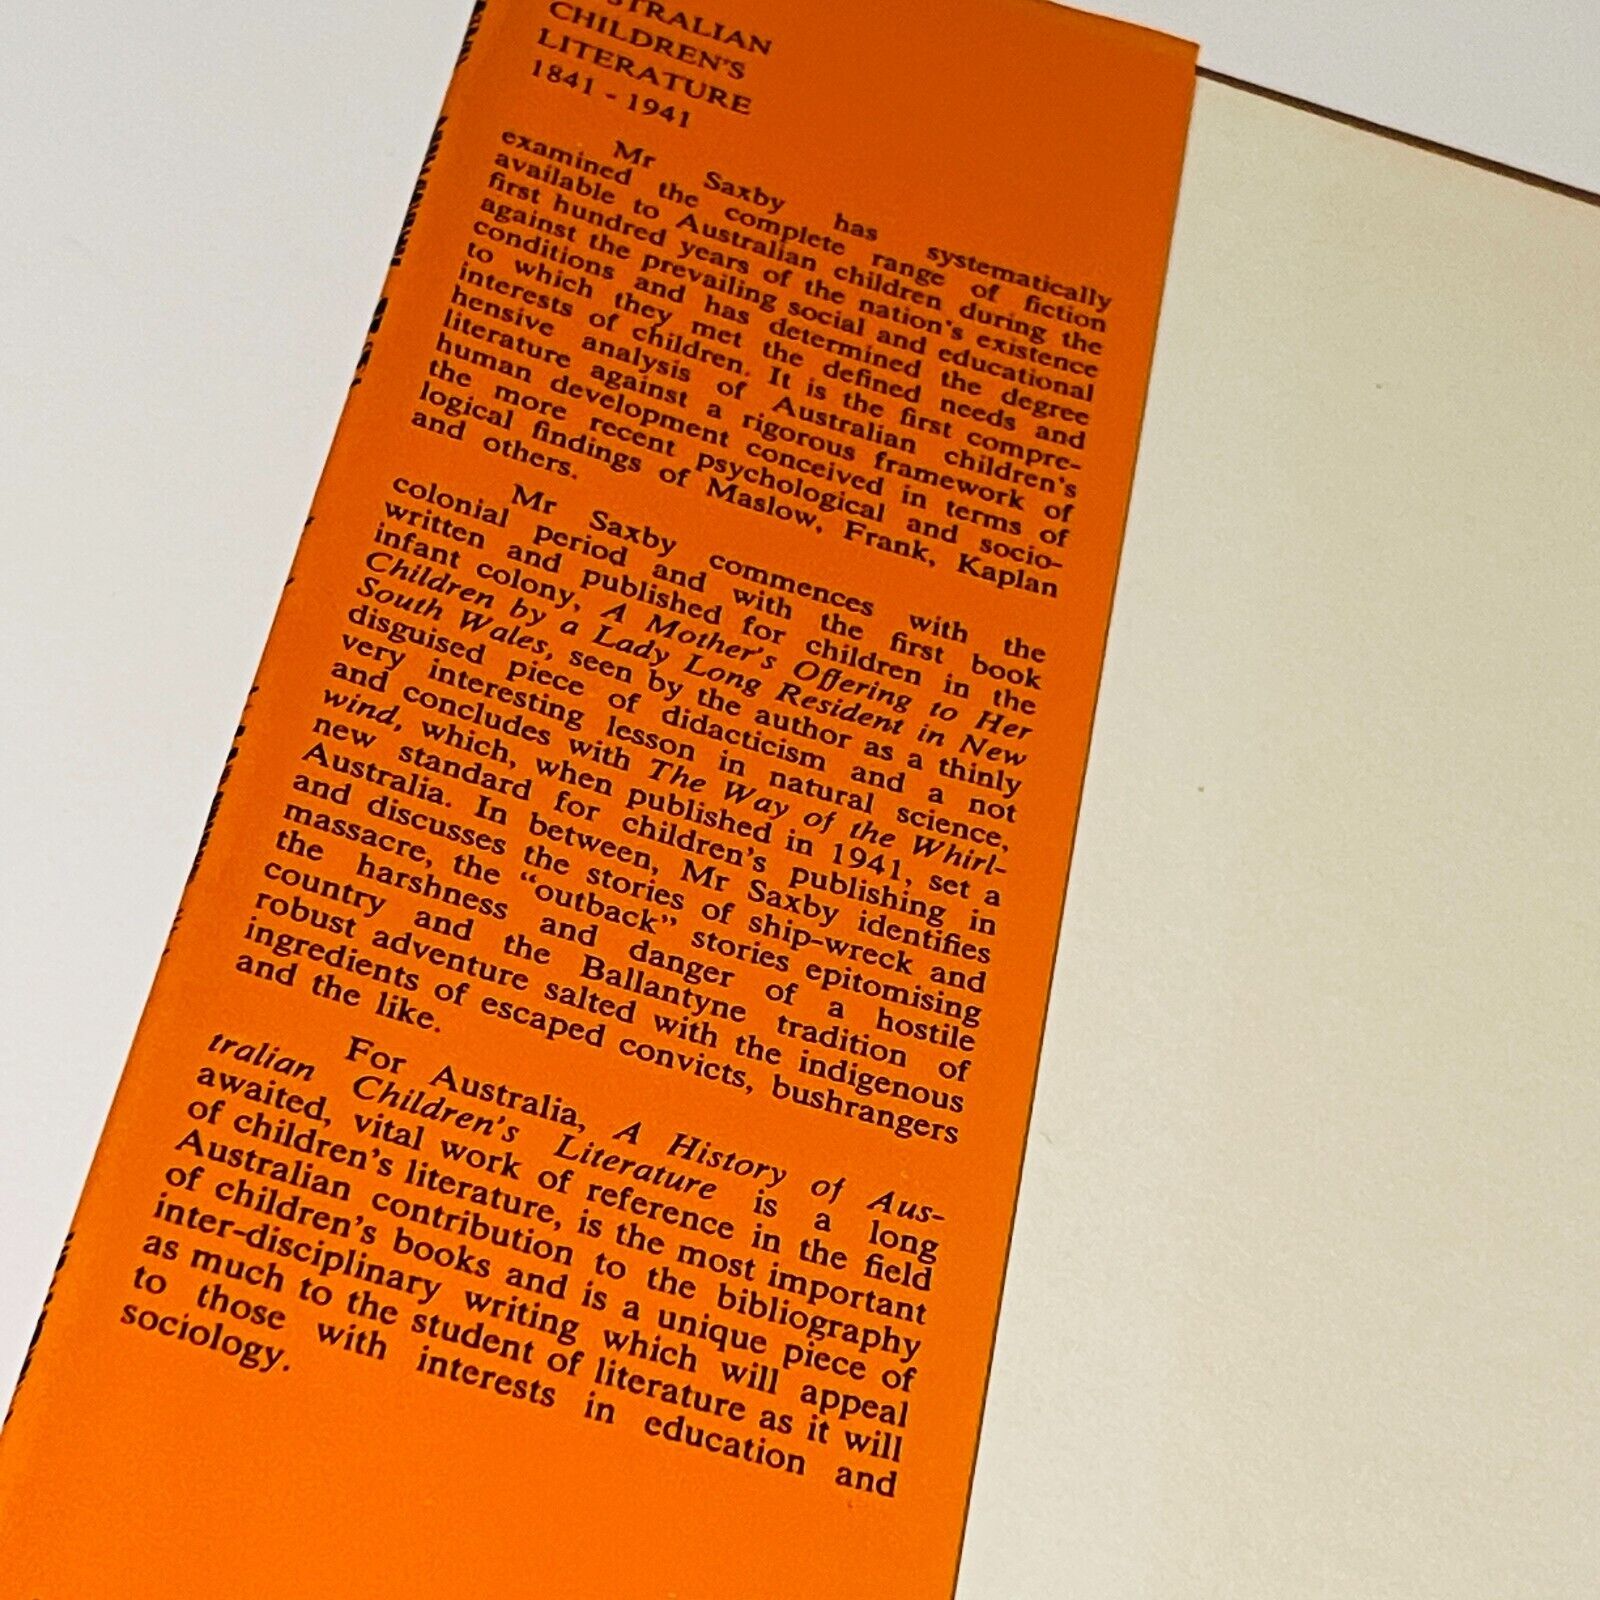 CHILDREN'S
LITERATURE
1841 - 1941
Mr Saxby has systematically
examined the complete range of fiction
available to Australian children during the
first hundred years of the nation's existence
against the prevailing social and educational
conditions and has determined the degree
to which they met the defined needs and
interests of children. It is the first compre-
hensive analysis of Australian children's
literature against a rigorous framework of
human development conceived in terms of
the more recent psychological and socio-
logical findings of Maslow, Frank, Kaplan
and others.
Mr Saxby commences with the
colonial period and with the first book
written and published for children in the
infant colony, A Mother's Offering to Her
Children by a Lady Long Resident in New
South Wales, seen by the author as a thinly
disguised piece of didacticism and a not
very interesting lesson in natural science,
and concludes with The Way of the Whirl-
wind, which, when published in 1941, set a
new standard for children's publishing in
Australia. In between, Mr Saxby identifies
and discusses the stories of ship-wreck and
massacre, the "outback" stories epitomising
the harshness and danger of a hostile
country and the Ballantyne tradition of
robust adventure salted with the indigenous
ingredients of escaped convicts, bushrangers
and the like.
For Australia, A History of Aus-
tralian Children's Literature is a long
awaited, vital work of reference in the field
of children's literature, is the most important
Australian contribution to the bibliography
of children's books and is a unique piece of
inter-disciplinary writing which will appeal
as much to the student of literature as it will
to those with interests in education and
sociology.